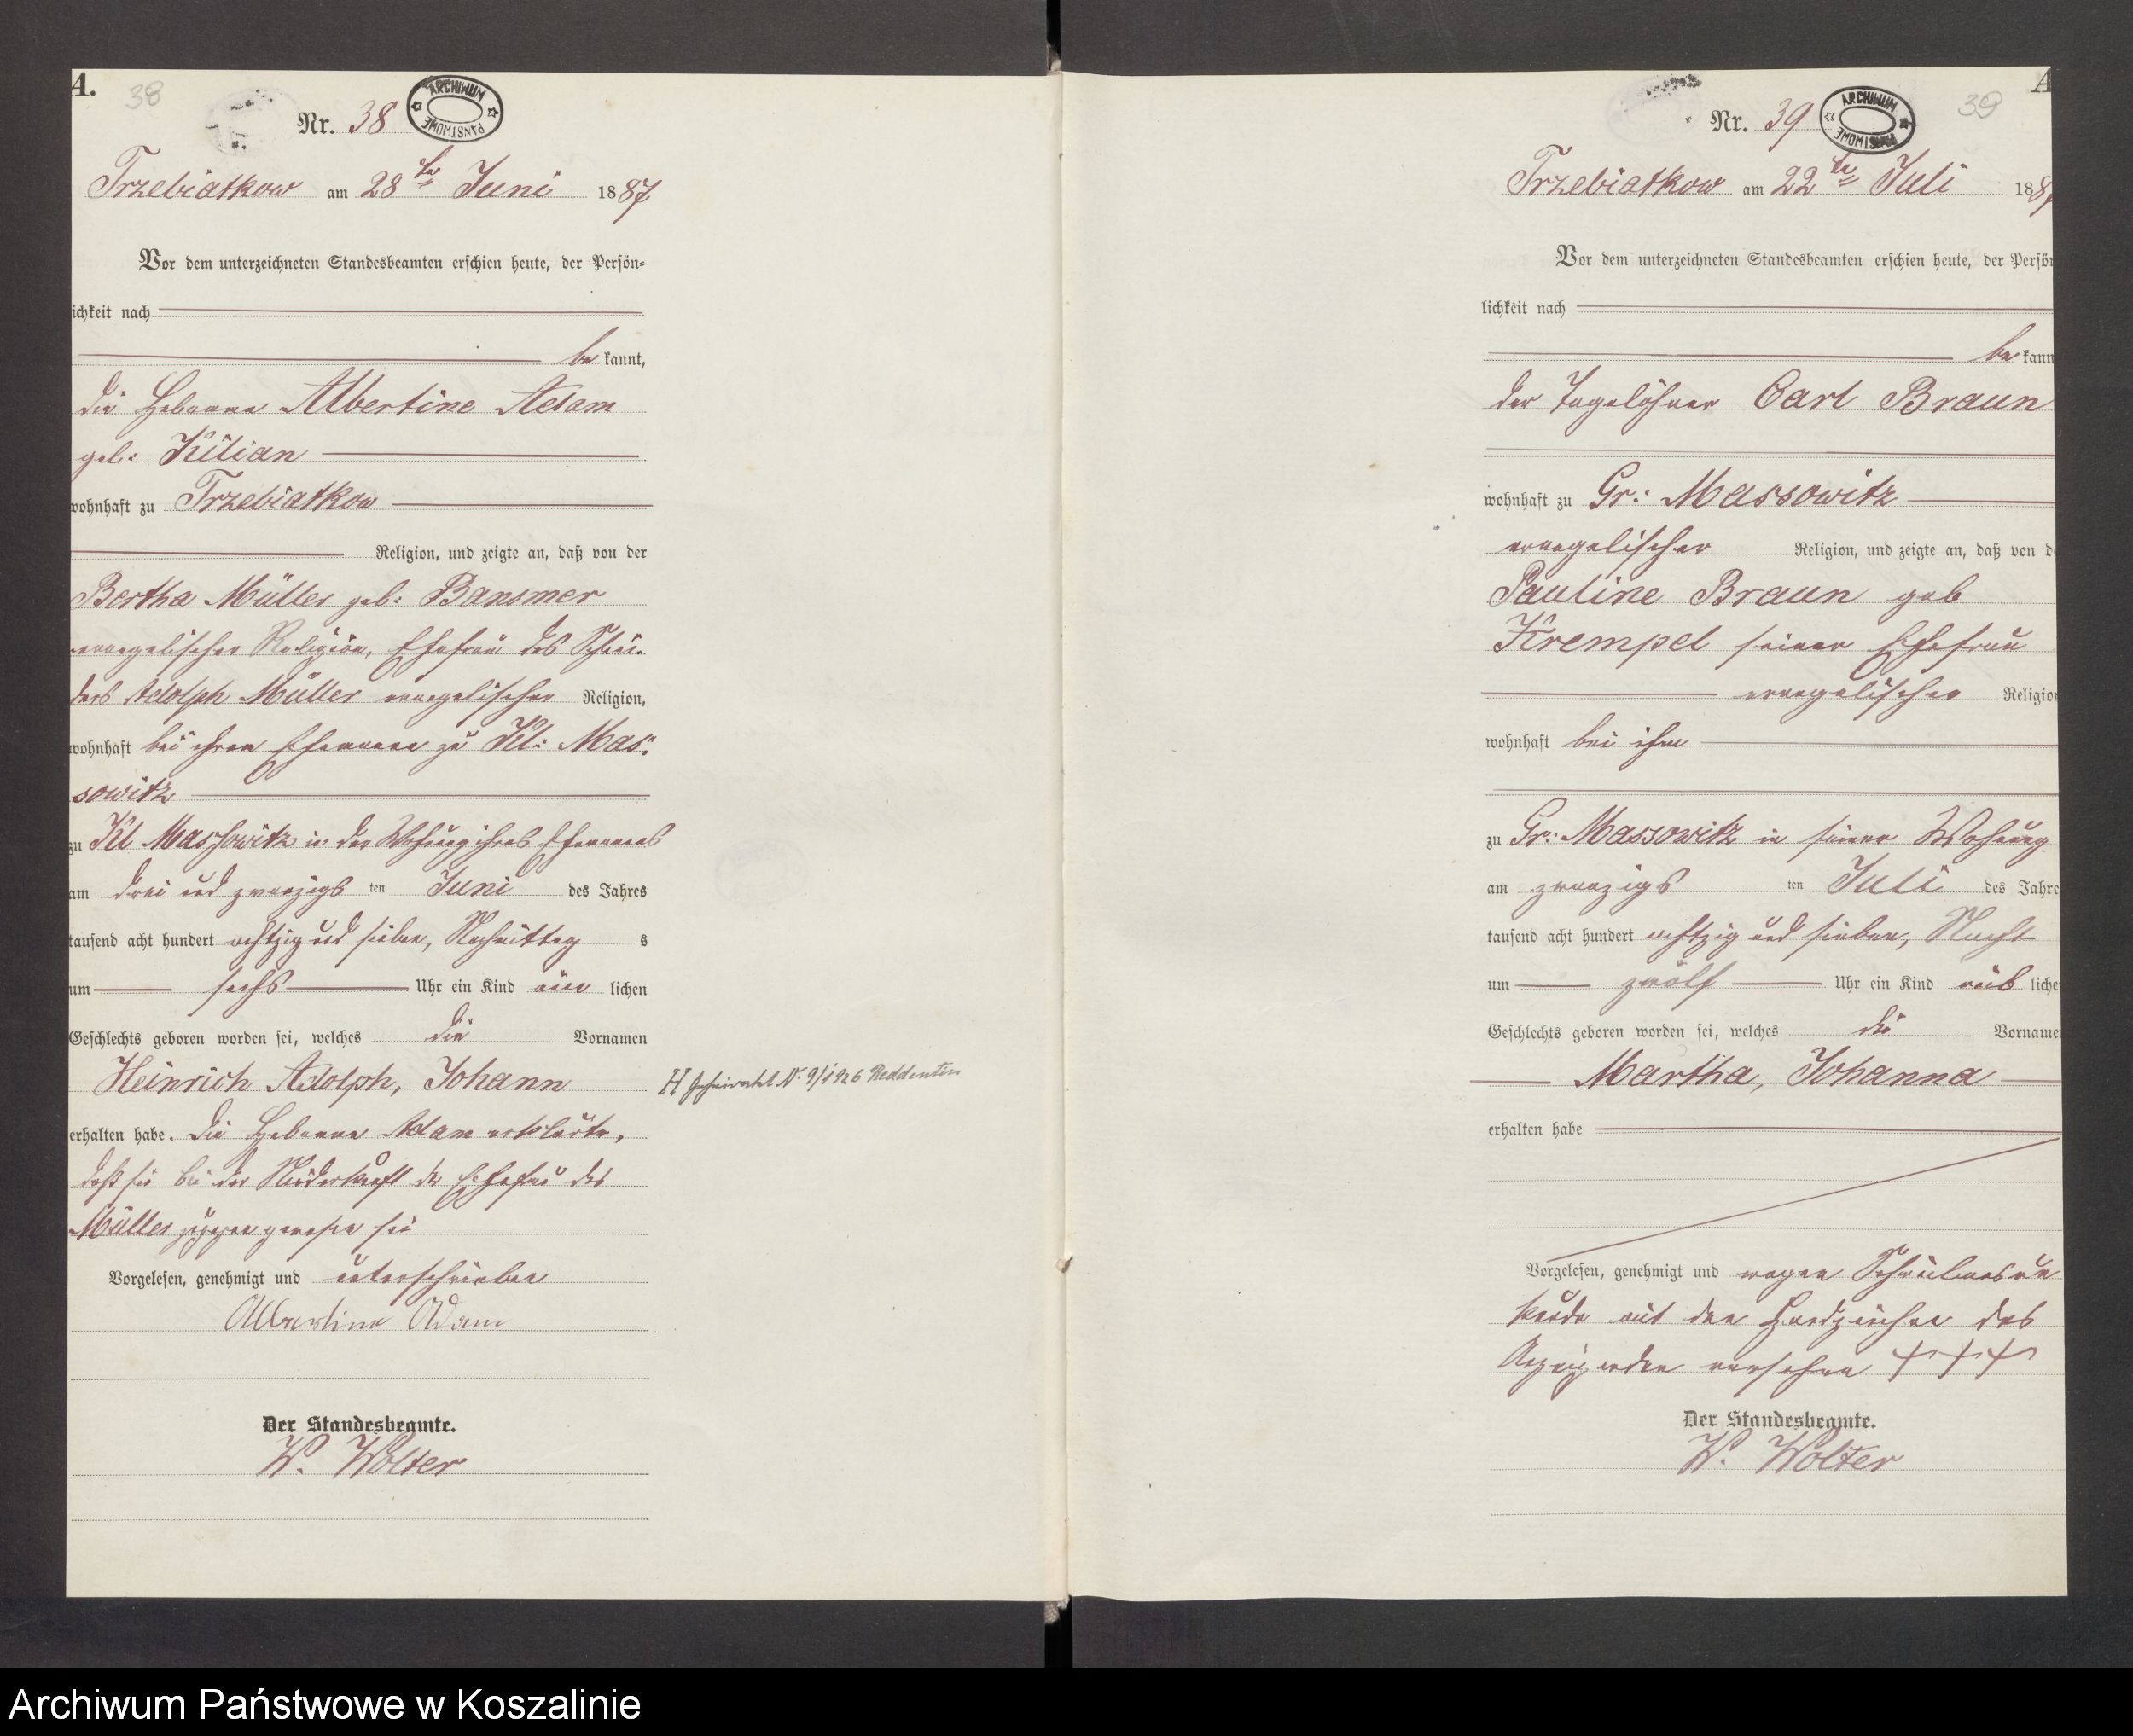 A.
38
Nr. 38
ARCHIWUM PAŃSTWOWE
Trzebiatkow am 28ten Juni 1887
Vor dem unterzeichneten Standesbeamten erschien heute, der Persön=
ichkeit nach
be kannt,
die Hebamme Albertine Adam
geb: Kilian
wohnhaft zu Trzebiatkow
Religion, und zeigte an, daß von der
Bertha Müller geb: Bansmer
evangelischer Religion, Ehefrau des Schnei-
ders Adolph Müller evangelischer Religion,
wohnhaft bei ihrem Ehemanne zu Kl: Mas:
sowitz
zu Kl Massowitz in der Wohnung ihres Ehemannes
am drei und zwanzigs ten Juni des Jahres
tausend acht hundert achtzig und sieben, Nachmittag s
um sechs Uhr ein Kind män lichen
Geschlechts geboren worden sei, welches die Vornamen
Heinrich Adolph, Johann
H geheiratet Nr. 9/1926 Reddentin
erhalten habe. Die Hebamme Adam erklärte,
daß sie bei der Niederkunft der Ehefrau des
Müller zugegen gewesen sei
Vorgelesen, genehmigt und unterschrieben
Albertine Adam
Der Standesbeamte.
W. Wolter
A
39
Nr. 39
ARCHIWUM PAŃSTWOWE
Trzebiatkow am 22ten Juli 1887
Vor dem unterzeichneten Standesbeamten erschien heute, der Persön
lichkeit nach
be kann
der Tagelöhner Carl Braun
wohnhaft zu Gr: Massowitz
evangelischer Religion, und zeigte an, daß von de
Pauline Braun geb
Krempel seiner Ehefrau
evangelischer Religion
wohnhaft bei ihm
zu Gr: Massowitz in seiner Wohnung
am zwanzigs ten Juli des Jahre
tausend acht hundert achtzig und sieben, Nacht
um zwölf Uhr ein Kind weib liche
Geschlechts geboren worden sei, welches die Vorname
Martha, Johanna
erhalten habe
Vorgelesen, genehmigt und wegen Schreibensun
kunde mit dem Handzeichen des
Anzeigenden versehen +++
Der Standesbeamte.
W. Wolter
Archiwum Państwowe w Koszalinie